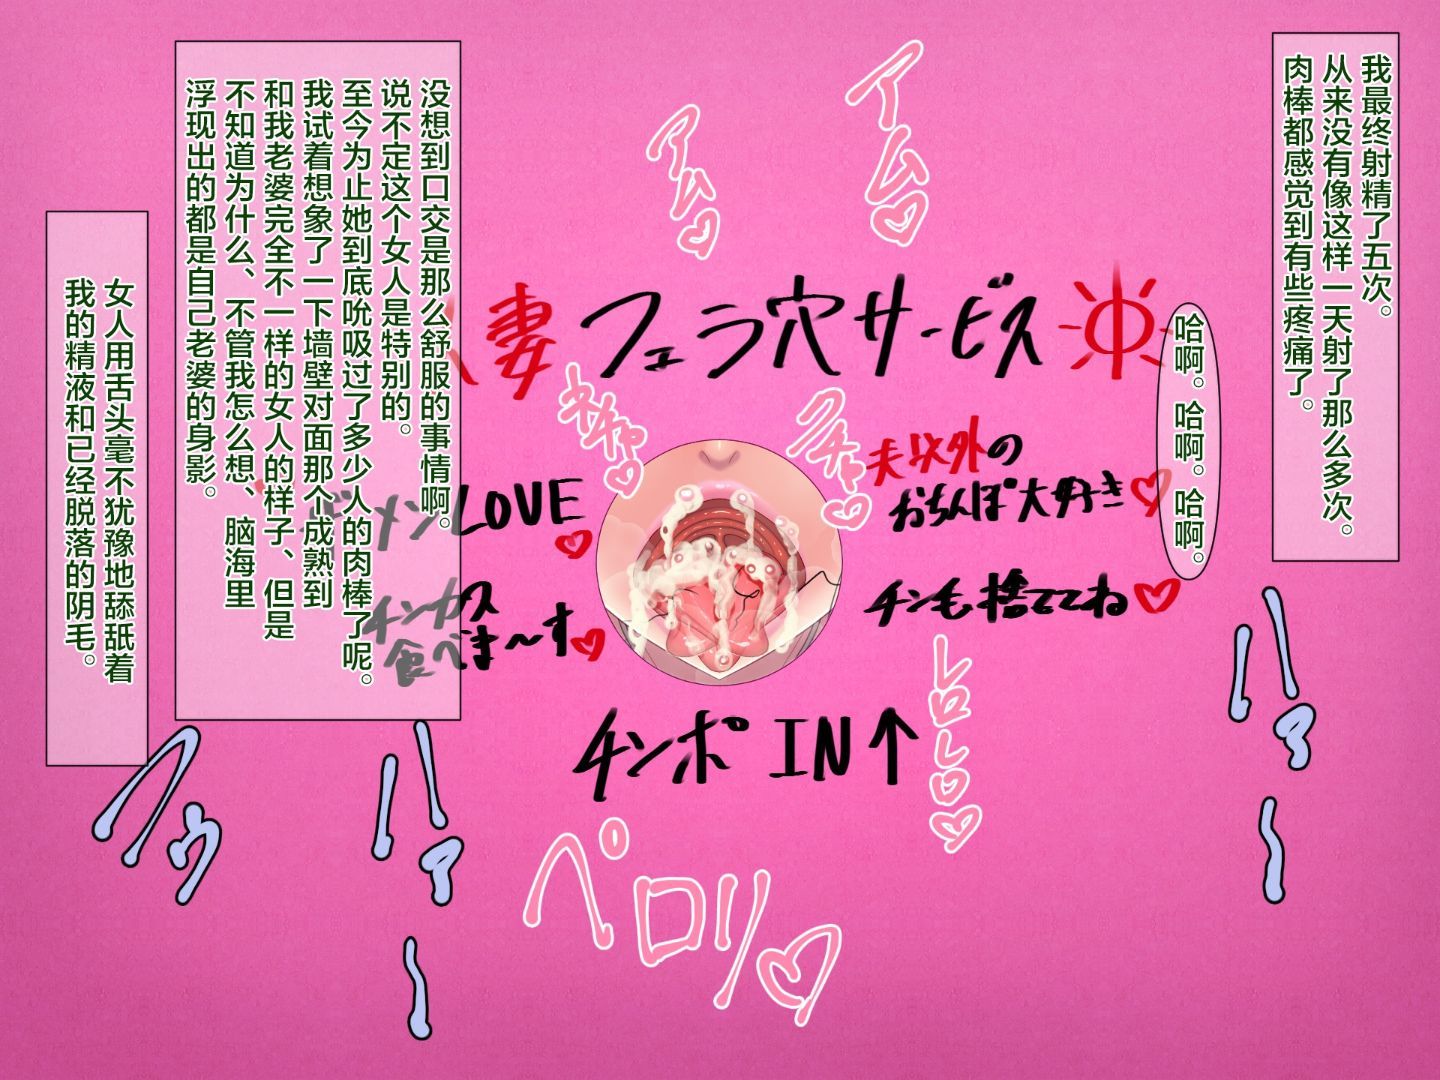 我最终射精了五次。
从来没有像这样一天射了那么多次。
肉棒都感觉到有些疼痛了。
哈啊。哈啊。哈啊。
アム♡
アム♡
妻フェラ穴サービス中
クチャ♡
クチャ♡
夫以外の
おちんぽ大好き♡
ザーメンLOVE♡
チン毛捨ててね♡
チンカス
食べま～す♡
チンポIN↑
レロレロ♡
ペロリ♡
ハァ～
没想到口交是那么舒服的事情啊。
说不定这个女人是特别的。
至今为止她到底吮吸过了多少人的肉棒了呢。
我试着想象了一下墙壁对面那个成熟到
和我老婆完全不一样的女人的样子、但是
不知道为什么、不管我怎么想、脑海里
浮现出的都是自己老婆的身影。
ハァ～
女人用舌头毫不犹豫地舔舐着
我的精液和已经脱落的阴毛。
ハゥ